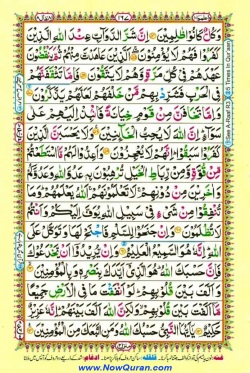 وَكُلٌّ كَانُوْا ظٰلِمِيْنَ اِنَّ شَرَّ الدَّوَآبِّ عِنْدَ اللهِ الَّذِيْنَ
كَفَرُوْا فَهُمْ لَا يُؤْمِنُوْنَ اَلَّذِيْنَ عَاهَدْتَّ مِنْهُمْ ثُمَّ يَنْقُضُوْنَ
عَهْدَهُمْ فِيْ كُلِّ مَرَّةٍ وَّهُمْ لَا يَتَّقُوْنَ فَاِمَّا تَثْقَفَنَّهُمْ
فِي الْحَرْبِ فَشَرِّدْ بِهِمْ مَّنْ خَلْفَهُمْ لَعَلَّهُمْ يَذَّكَّرُوْنَ
وَاِمَّا تَخَافَنَّ مِنْ قَوْمٍ خِيَانَةً فَانْۢبِذْ اِلَيْهِمْ عَلٰى
سَوَآءٍ اِنَّ اللهَ لَا يُحِبُّ الْخَآئِنِيْنَ وَلَا يَحْسَبَنَّ الَّذِيْنَ
كَفَرُوْا سَبَقُوْا اِنَّهُمْ لَا يُعْجِزُوْنَ وَاَعِدُّوْا لَهُمْ مَّا اسْتَطَعْتُمْ
مِّنْ قُوَّةٍ وَّمِنْ رِّبَاطِ الْخَيْلِ تُرْهِبُوْنَ بِهٖ عَدُوَّ اللهِ وَعَدُوَّكُمْ
وَاٰخَرِيْنَ مِنْ دُوْنِهِمْ لَا تَعْلَمُوْنَهُمْ اَللهُ يَعْلَمُهُمْ وَمَا
تُنْفِقُوْا مِنْ شَيْءٍ فِيْ سَبِيْلِ اللهِ يُوَفَّ اِلَيْكُمْ وَاَنْتُمْ
لَا تُظْلَمُوْنَ وَاِنْ جَنَحُوْا لِلسَّلْمِ فَاجْنَحْ لَهَا وَتَوَكَّلْ عَلَى
اللهِ اِنَّهٗ هُوَ السَّمِيْعُ الْعَلِيْمُ وَاِنْ يُّرِيْدُوْا اَنْ يَّخْدَعُوْكَ
فَاِنَّ حَسْبَكَ اللهُ هُوَ الَّذِيْ اَيَّدَكَ بِنَصْرِهٖ وَبِالْمُؤْمِنِيْنَ
وَاَلَّفَ بَيْنَ قُلُوْبِهِمْ لَوْ اَنْفَقْتَ مَا فِي الْاَرْضِ جَمِيْعًا
مَّا اَلَّفْتَ بَيْنَ قُلُوْبِهِمْ وَلٰكِنَّ اللهَ اَلَّفَ بَيْنَهُمْ اِنَّهٗ عَزِيْزٌ
حَكِيْمٌ يٰاَيُّهَا النَّبِيُّ حَسْبُكَ اللهُ وَمَنِ اتَّبَعَكَ مِنَ الْمُؤْمِنِيْنَ
www.NowQuran.com